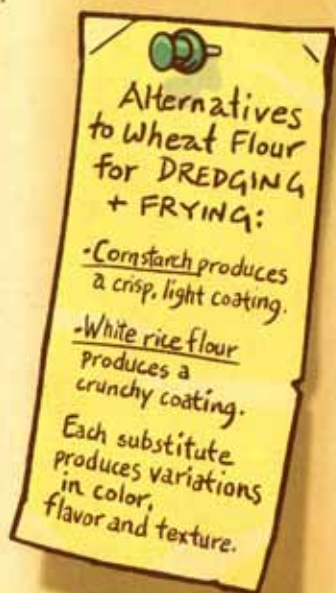 Alternatives
to Wheat Flour
for DREDGING
+ FRYING:
-Cornstarch produces
a crisp, light coating.
-White rice flour
produces a
crunchy coating.
Each substitute
produces variations
in color,
flavor and texture.